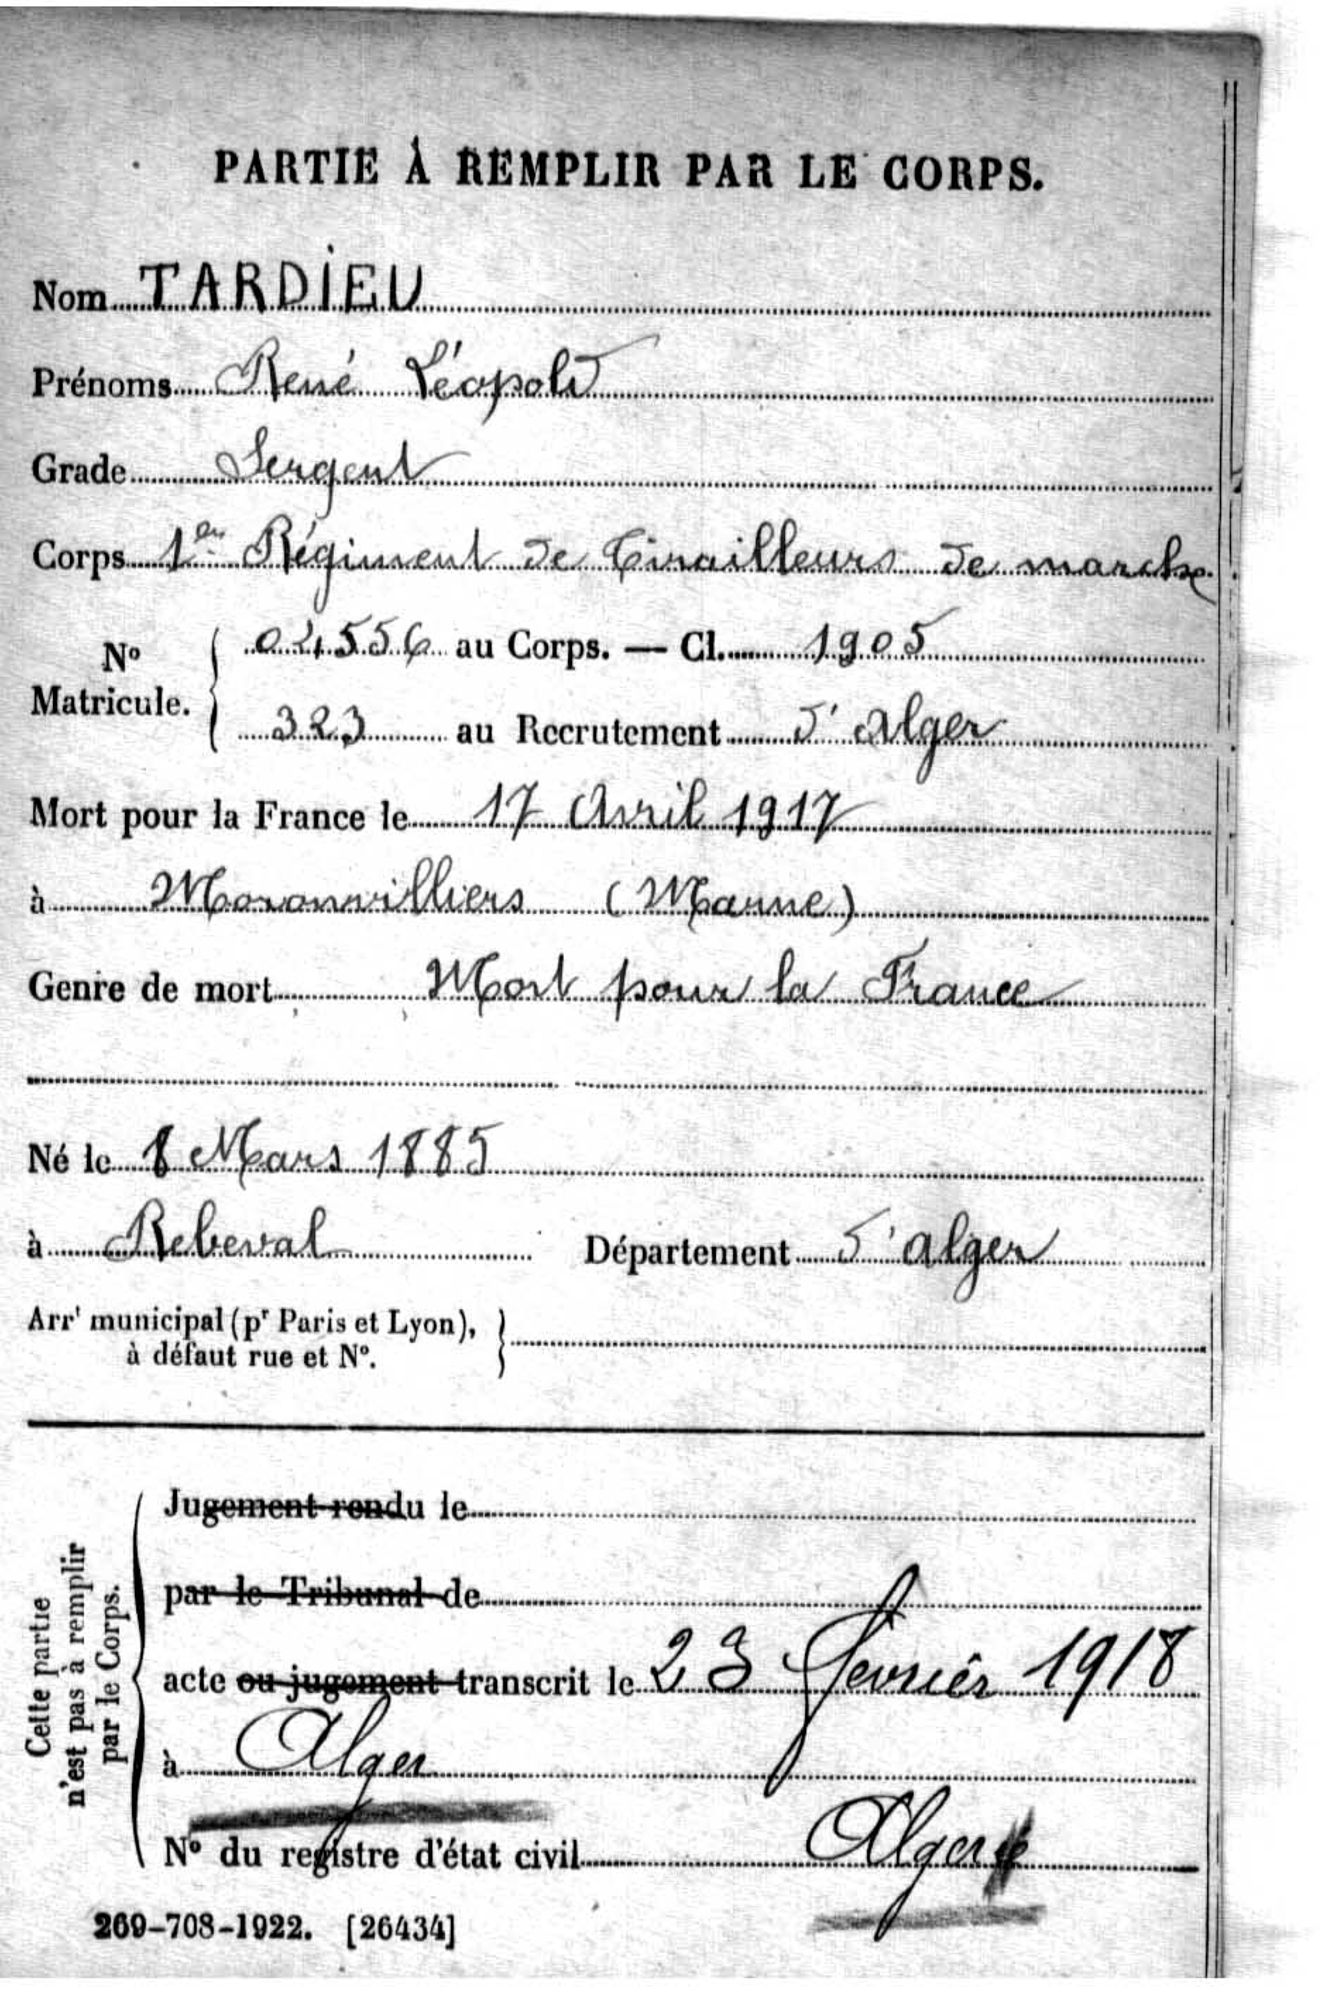 PARTIE À REMPLIR PAR LE CORPS.
Nom TARDIEU
Prénoms René Léopold
Grade Sergent
Corps 1er Régiment de Tirailleurs de marche
No Matricule. 04556 au Corps. — Cl. 1905
323 au Recrutement d'Alger
Mort pour la France le 17 Avril 1917
à Moronvilliers (Marne)
Genre de mort Mort pour la France
Né le 8 Mars 1885
à Rebeval Département d'Alger
Arrt municipal (pr Paris et Lyon),
à défaut rue et No.
Cette partie
n'est pas à remplir
par le Corps.
Jugement rendu le
par le Tribunal de
acte ou jugement transcrit le 23 février 1918
à Alger
No du registre d'état civil Alger
269-708-1922. [26434]